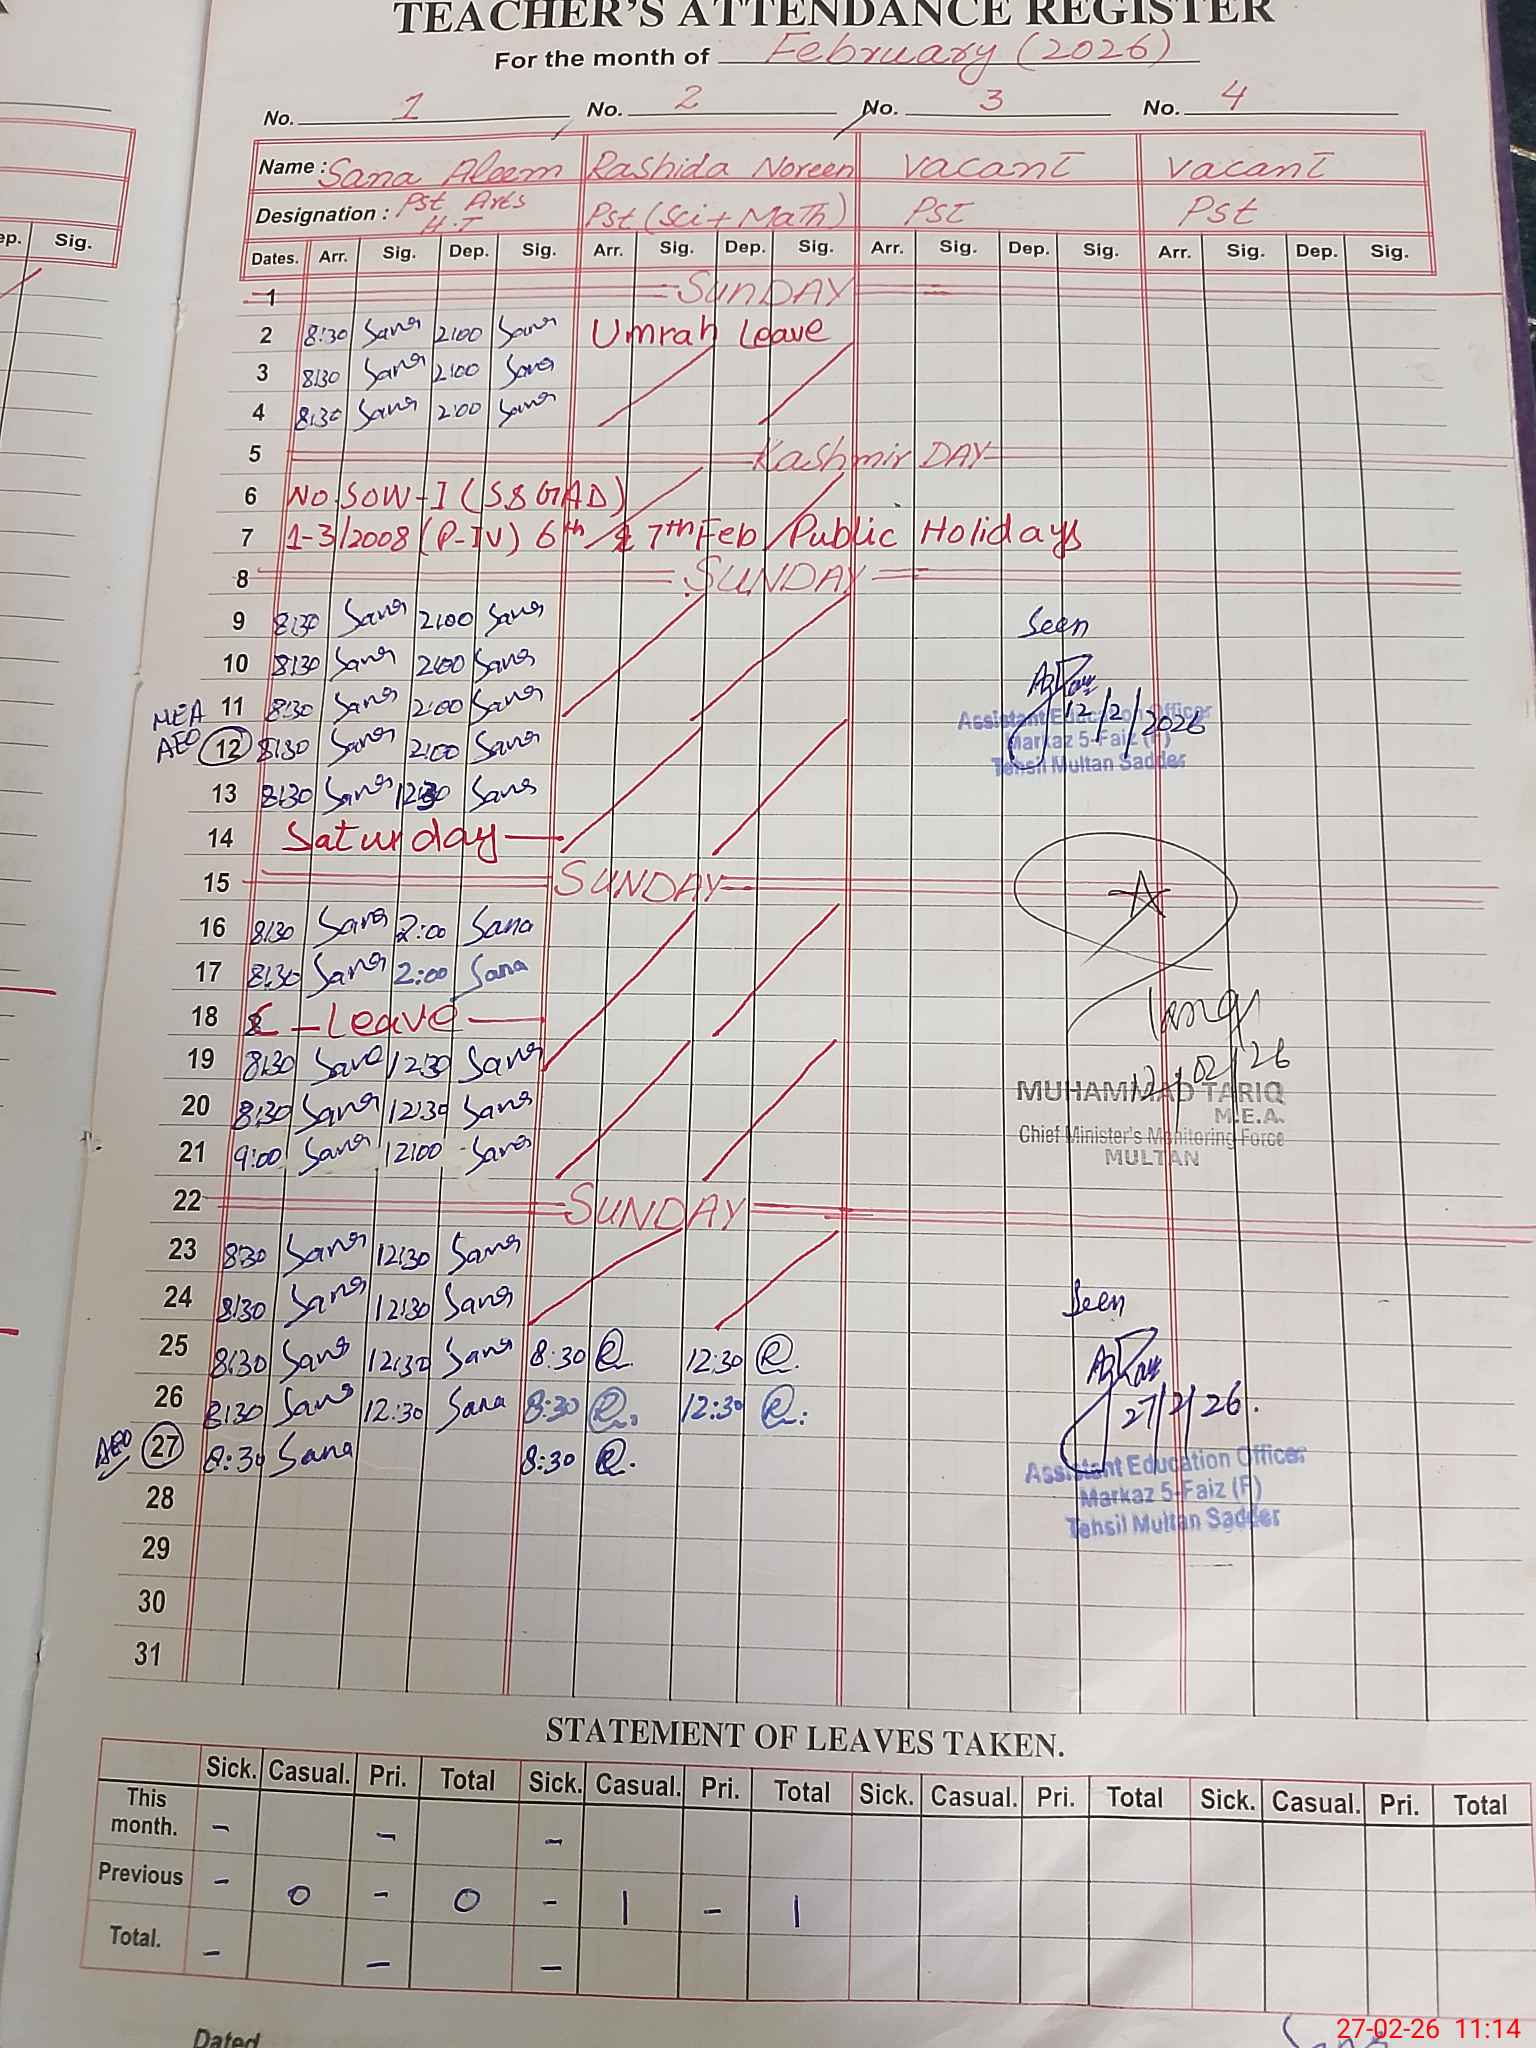 TEACHER'S ATTENDANCE REGISTER
For the month of February (2026)
No. 1 No. 2 No. 3 No. 4
Name : Sana Aleem Rashida Noreen Vacant Vacant
Designation : Pst Arts H.T Pst (Sci + Math) Pst Pst
Dates. Arr. Sig. Dep. Sig. Arr. Sig. Dep. Sig. Arr. Sig. Dep. Sig. Arr. Sig. Dep. Sig.
ep. Sig.
1 SUNDAY
2 8:30 Sana 2:00 Sana Umrah Leave
3 8:30 Sana 2:00 Sana
4 8:30 Sana 2:00 Sana
5 Kashmir DAY
6 NO. SOW-I (S&GAD)
7 1-3/2008 (P-IV) 6th & 7th Feb Public Holidays
8 SUNDAY
9 8:30 Sana 2:00 Sana Seen
10 8:30 Sana 2:00 Sana
MEA 11 8:30 Sana 2:00 Sana 12/2/2026
AEO 12 8:30 Sana 2:00 Sana
Assistant Education Officer
Markaz 5-Faiz (F)
Tehsil Multan Sadder
13 8:30 Sana 12:30 Sana
14 Saturday
15 SUNDAY
16 8:30 Sana 2:00 Sana
17 8:30 Sana 2:00 Sana
18 C - Leave
19 8:30 Sana 12:30 Sana
20 8:30 Sana 12:30 Sana
21 9:00 Sana 12:00 Sana
Tariq
12/02/26
MUHAMMAD TARIQ
M.E.A.
Chief Minister's Monitoring Force
MULTAN
22 SUNDAY
23 8:30 Sana 12:30 Sana
24 8:30 Sana 12:30 Sana Seen
25 8:30 Sana 12:30 Sana 8:30 R. 12:30 R.
26 8:30 Sana 12:30 Sana 8:30 R. 12:30 R. 27/2/26.
AEO 27 8:30 Sana 8:30 R.
Assistant Education Officer
Markaz 5-Faiz (F)
Tehsil Multan Sadder
28
29
30
31
STATEMENT OF LEAVES TAKEN.
Sick. Casual. Pri. Total Sick. Casual. Pri. Total Sick. Casual. Pri. Total Sick. Casual. Pri. Total
This month. - - -
Previous - 0 - 0 - 1 - 1
Total. - - -
Dated
Sana
27-02-26 11:14